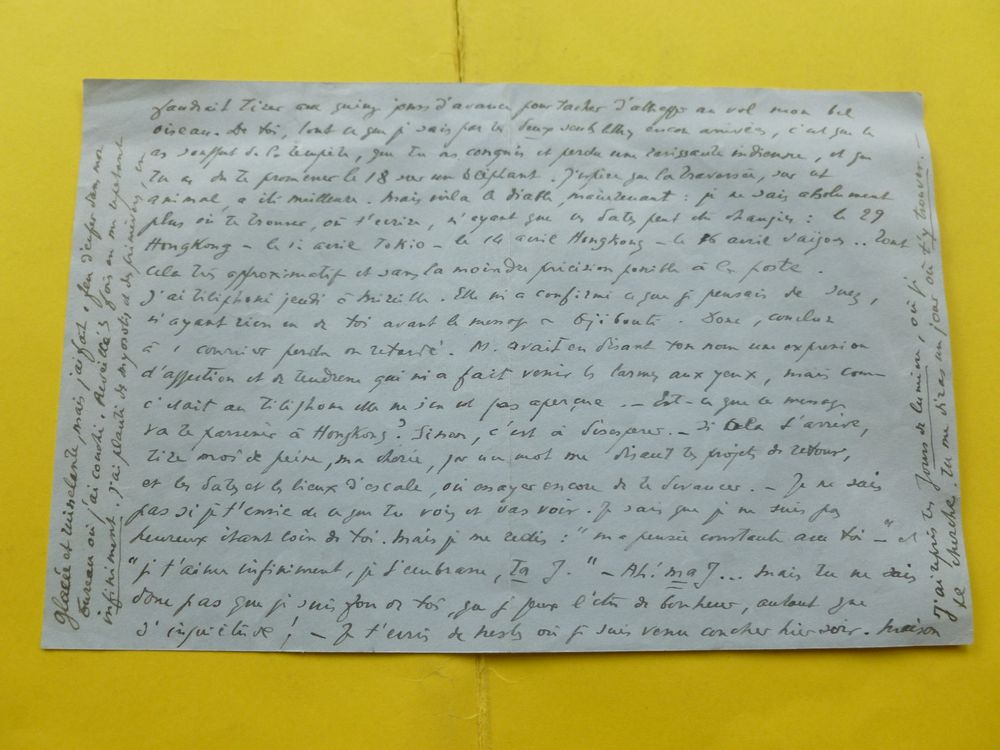 faudrait tirer aux quinze jours d'avance pour tâcher d'attraper au vol mon bel
oiseau. De toi, tout ce que je sais par tes deux seuls encore arrivées, c'est que tu
as souffert de la tempête, que tu as conquis et perdu une ravissante indienne, et que
tu as dû te promener le 18 sur un éléphant. J'espère que la traversée, sur cet
animal, a été meilleure. Mais voilà le diable, maintenant : je ne sais absolument
plus où te trouver, où t'écrire, n'ayant que ces dates peut-être changées : le 29
HongKong – le 1er avril Tokio – le 14 avril HongKong – le 16 avril Saïgon .. Tout
cela très approximatif et sans la moindre précision possible à la poste.
J'ai téléphoné jeudi à Mireille. Elle m'a confirmé ce que je pensais de Suez,
n'ayant rien eu de toi avant le message de Djibouti. Donc, conclure
à 1 courrier perdu ou retardé. M. avait en disant ton nom une expression
d'affection et de tendresse qui m'a fait venir les larmes aux yeux, mais comme
c'était au téléphone elle ne s'en est pas aperçue. – Est-ce que ce message
va te parvenir à HongKong? Sinon, c'est à désespérer. – Si cela t'arrive,
tire moi de peine, ma chérie, par un mot me disant tes projets de retour,
et les dates et les lieux d'escale, où essayer encore de te devancer. – Je ne sais
pas si je t'envie de ce que tu vois et vas voir. Je sais que je ne suis pas
heureux étant loin de toi. Mais je me redis : "ma pensée constante avec toi – " et
"je t'aime infiniment, je t'embrasse, ta J." – Ah! ma J... Mais tu ne sais
donc pas que je suis fou de toi, que je peux l'être de bonheur, autant que
d'inquiétude! – Je t'écris de Nesles où je suis venu coucher hier soir. Maison
glacée et ruisselante, mais j'ai fait 1 feu d'enfer dans mon
bureau où j'ai couché. Réveillé 3 fois en me répétant
infiniment. J'ai planté des myosotis et des primevères, en
J'ai après tes Jours de lumière, où je
te cherche. Tu me diras un jour où t'y trouver. –